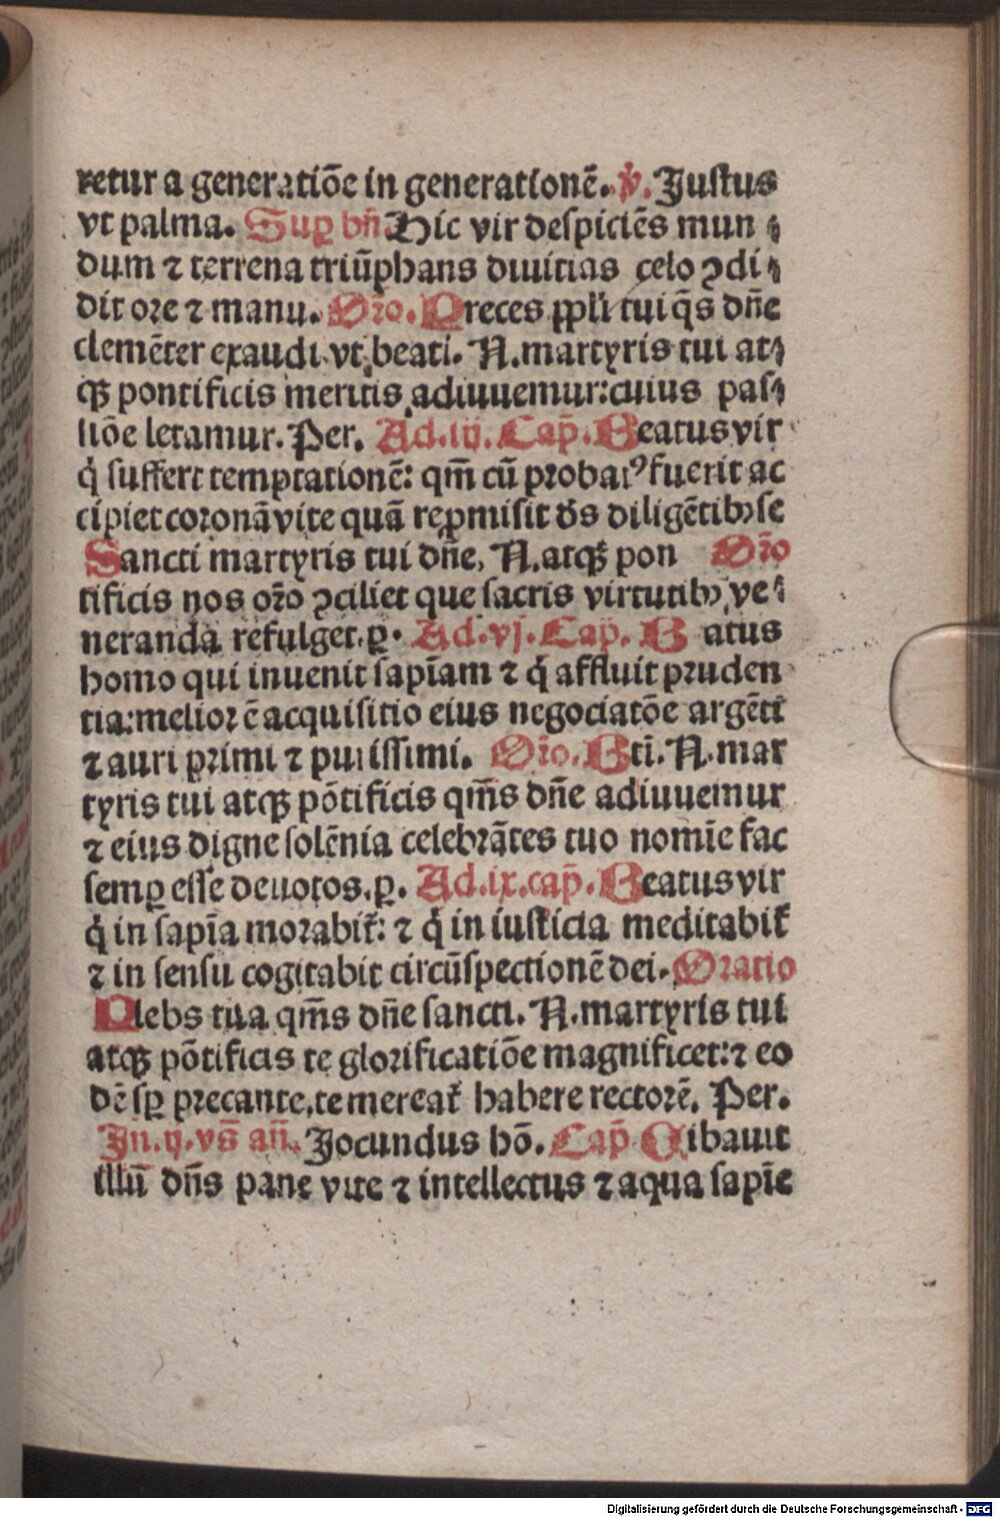 retur a generatiōe in generationē. ℣. Justus
vt palma. Suꝑ bn̄ Hic vir despiciēs mun⸗
dum ⁊ terrena triūphans diuitias celo ꝯdi⸗
dit ore ⁊ manu. Or̄o. Preces ppl'i tui q̄s dn̄e
clemēter exaudi vt beati. N. martyris tui at⸗
qꝫ pontificis meritis adiuuemur: cuius pas⸗
siōe letamur. Per. Ad .iij. Cap̄. Beatus vir
q̇ suffert temptationē: qm̄ cū probatꝰ fuerit ac
cipiet coronā vite quā reꝓmisit de͛s diligētibꝫ se
Sancti martyris tui dn̄e, N. atqꝫ pon Or̄o
tificis nos or̄o ꝯciliet que sacris virtutibꝫ ve⸗
neranda refulget. ꝑ. Ad .vj. Cap. B atus
homo qui inuenit sapīam ⁊ q̇ affluit pruden
tia: melior ē acquisitio eius negociatōe argēti
⁊ auri primi ⁊ purissimi. Or̄o. Bti̅. N. mar
tyris tui atqꝫ pōtificis qm̄s dn̄e adiuuemur
⁊ eius digne solēnia celebrātes tuo nomīe fac
semꝑ esse deuotos. ꝑ. Ad .ix. cap̄. Beatus vir
q̇ in sapīa morabit᷑: ⁊ q̇ in iusticia meditabit᷑
⁊ in sensu cogitabit circūspectionē dei. Oratio
Plebs tua qm̄s dn̄e sancti. N. martyris tui
atqꝫ pōtificis te glorificatiōe magnificet: ⁊ eo
dē sꝑ precante, te mereat᷑ habere rectorē. Per.
In .ij. vs̄ an̄. Jocundus hō. Cap̄ Cibauit
illū dn̄s pane vite ⁊ intellectus ⁊ aqua sapīe
Digitalisierung gefördert durch die Deutsche Forschungsgemeinschaft - DFG